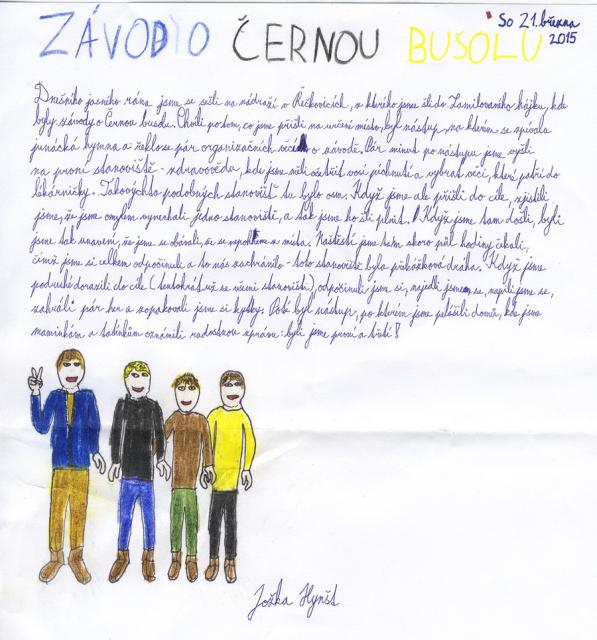 So 21. března
2015
ZÁVOD O ČERNOU BUSOLU
Dnešního jasného rána jsme se sešli na nádraží v Řečkovicích, z kterého jsme šli do Zamilovaného hájku, kde
byly závody o Černou busolu. Chvíli po tom, co jsme přišli na určení místo, byl nástup, na kterém se zpívala
junácká hymna a řeklo se pár organizačních věcí o závodě. Pár minut po nástupu jsme vyšli
na první stanoviště - zdravovědu, kde jsme měli ošetřit vosí píchnutí a vybrat věci, které patří do
lékárničky. Takovýchto podobných stanovišť tu bylo osm. Když jsme ale přišli do cíle, zjistili
jsme, že jsme omylem vynechali jedno stanoviště, a tak jsme ho šli plnit. Když jsme tam došli, byli
jsme tak unaveni, že jsme se obávali, že se nepohneme z místa. Naštěstí jsme tam skoro půl hodiny čekali,
čímž jsme si celkem odpočinuli a to nás zachránilo - toto stanoviště byla překážková dráha. Když jsme
podruhé dorazili do cíle (tentokrát už se všemi stanovišti), odpočinuli jsme si, najedli jsme se, napili jsme se,
zahráli pár her a zopakovali jsme si kytky. Poté byl nástup, po kterém jsme pelášili domů, kde jsme
maminkám a tatínkům oznámili radostnou zprávu: byli jsme první a třetí!
Jožka Hynšt